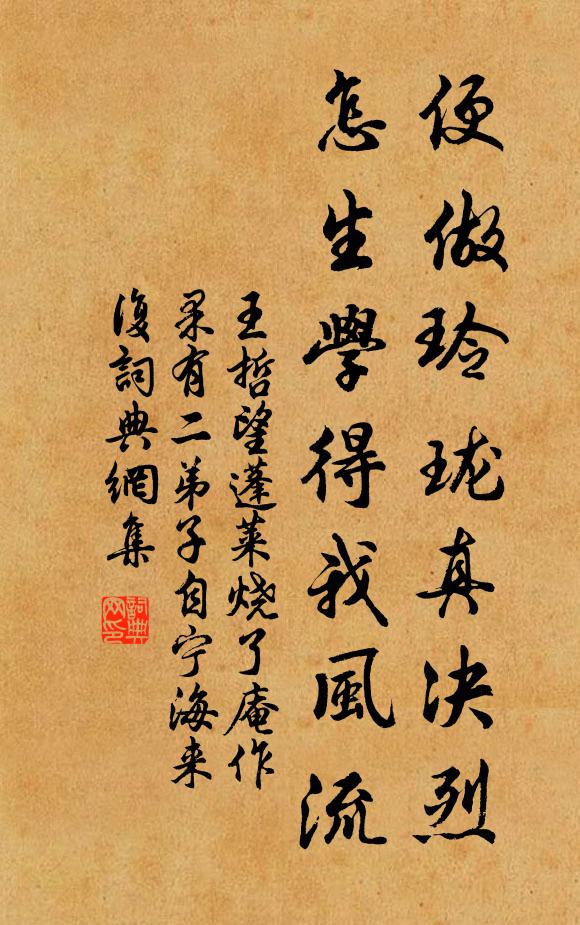 便做玲珑真决烈
怎生學得我風流
王哲望蓬莱烧了庵作
果有二弟子自宁海来
復詞典網集
詞典
网印